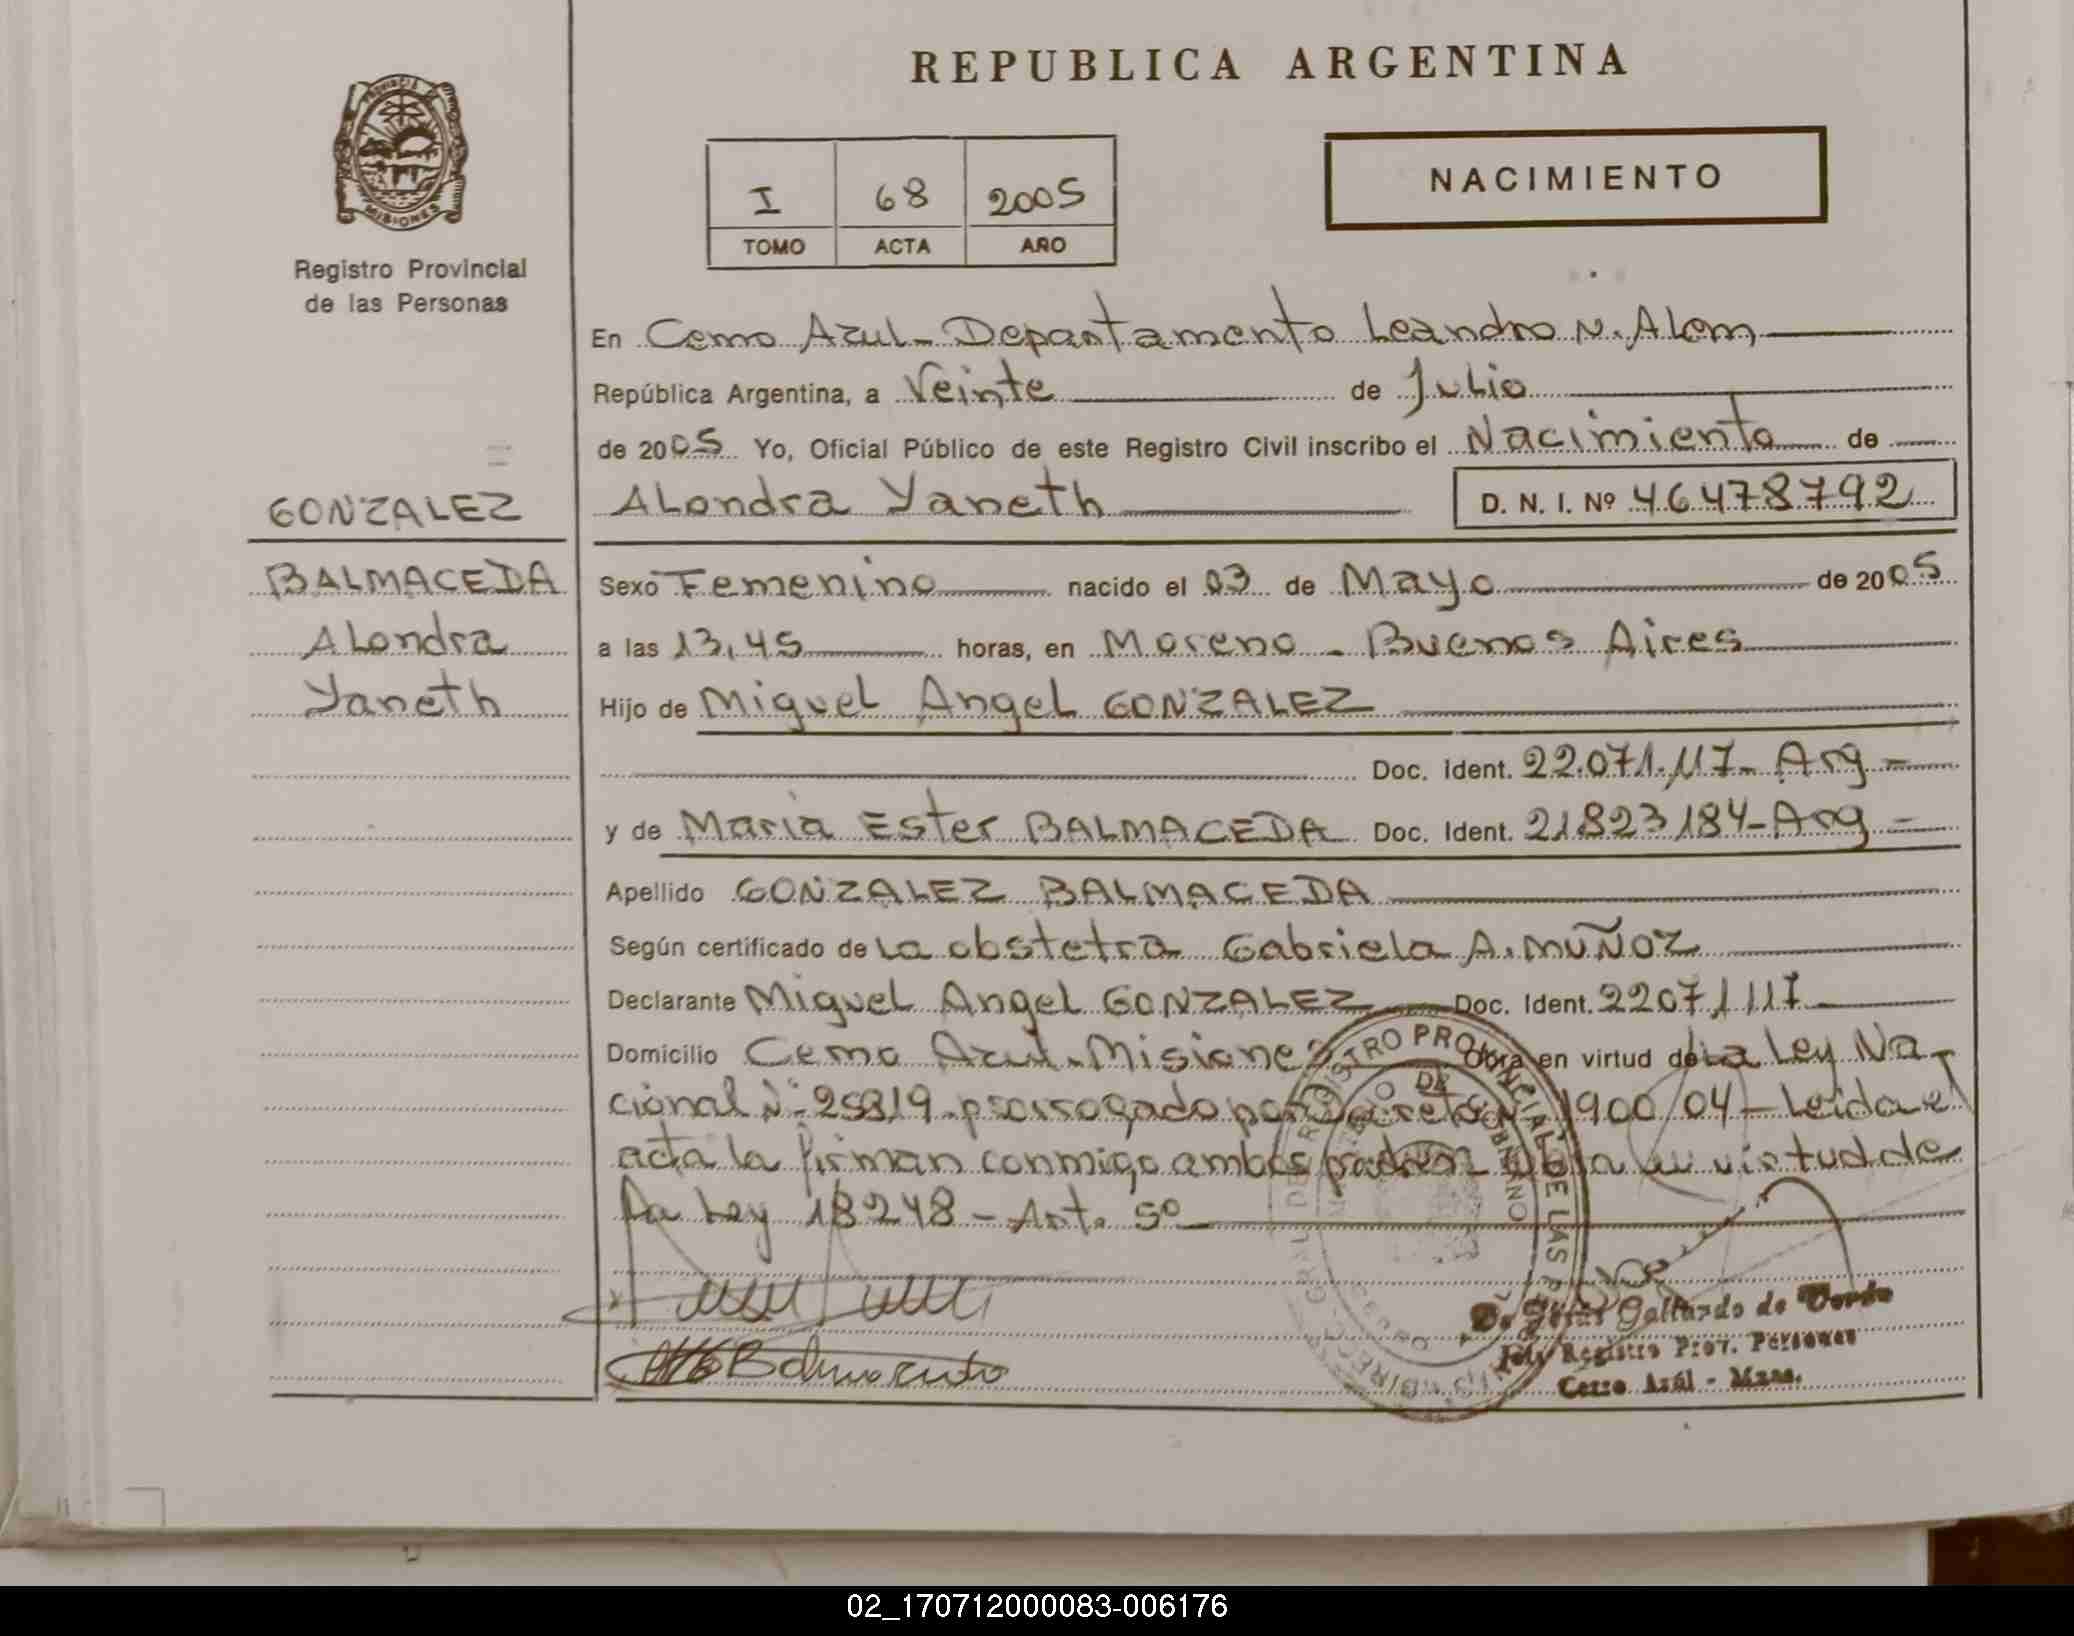 REPUBLICA ARGENTINA
PROVINCIA DE
MISIONES
Registro Provincial
de las Personas
I 68 2005
TOMO ACTA AÑO
NACIMIENTO
En Cerro Azul - Departamento Leandro N. Alem
República Argentina, a Veinte de Julio
de 2005 Yo, Oficial Público de este Registro Civil inscribo el Nacimiento de
Alondra Yaneth D. N. I. Nº 46478792
GONZALEZ
BALMACEDA
Alondra
Yaneth
Sexo Femenino nacido el 03 de Mayo de 2005
a las 13,45 horas, en Moreno - Buenos Aires
Hijo de Miguel Angel GONZALEZ
Doc. Ident. 22.071.117 - Arg -
y de Maria Ester BALMACEDA Doc. Ident. 21823184 - Arg -
Apellido GONZALEZ BALMACEDA
Según certificado de La obstetra Gabriela A. MUÑOZ
Declarante Miguel Angel GONZALEZ Doc. Ident. 22071117
Domicilio Cerro Azul - Misiones Obra en virtud de La Ley Na-
cional Nº 25819 prorrogado por Decreto Nº 1900/04 - Leida el
acta la firman conmigo ambos padres Obra en virtud de
la Ley 18248 - Art. 5º
Balmaceda
Gallardo de
Jefe Registro Prov. Personas
Cerro Azúl - Mnes.
02_170712000083-006176